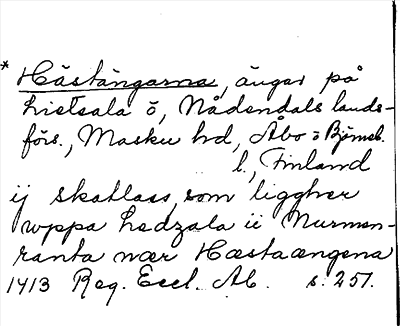 * Hästängarna, ängar på
Lietsala ö, Nådendals lands-
förs., Masku hd, Åbo o Björneb.
l., Finland
ij skattlass, som liggher
wppa Ledzala ii Nurmen-
ranta nær Hæstaængena
1413 Reg. Eccl. Ab. s. 251.